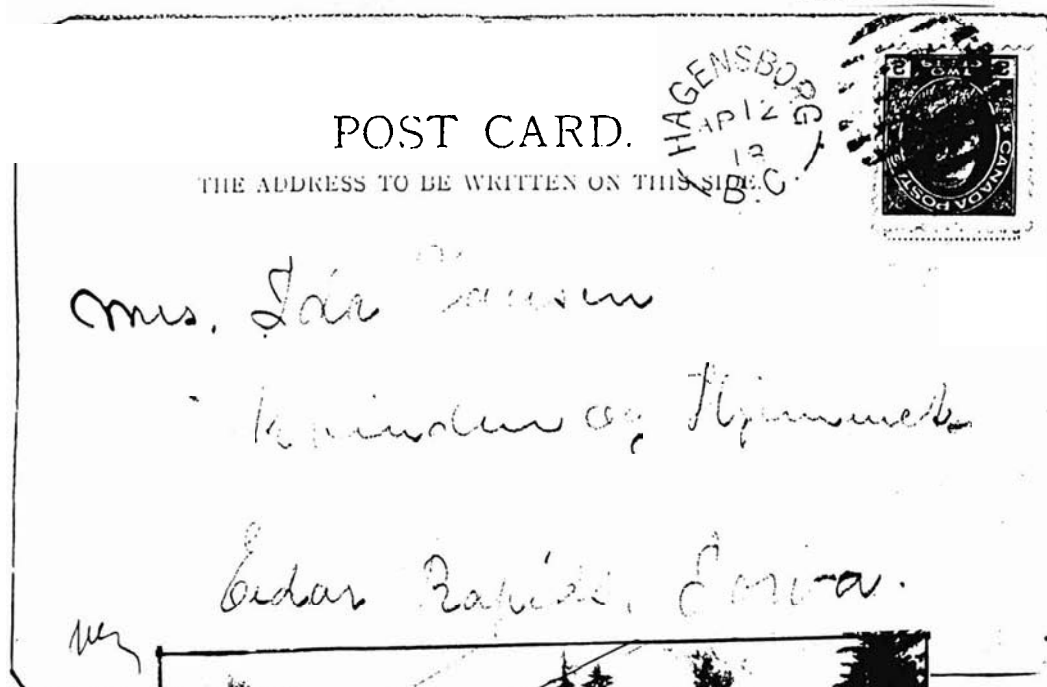 POST CARD.
THE ADDRESS TO BE WRITTEN ON THIS SIDE.
HAGENSBORG
AP 12
B.C.
2 TWO CENTS 2
CANADA POSTAGE
Mrs. Ida Hansen
Kvinden og Hjemmet
Cedar Rapids, Iowa.